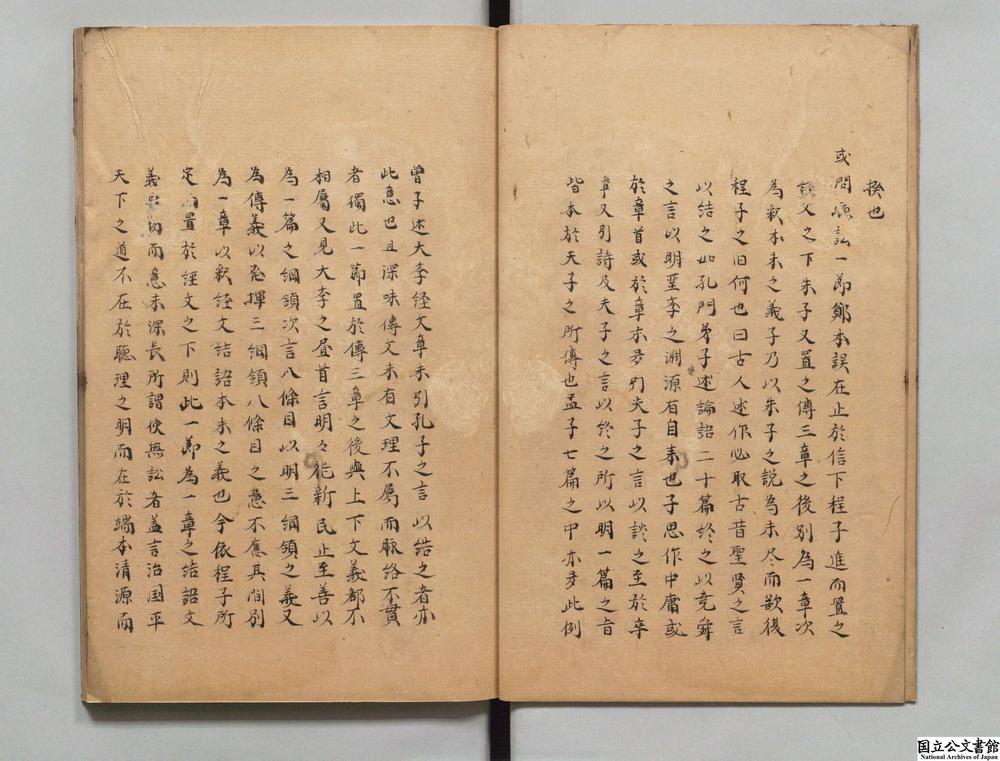 揆也
或問聴訟一節鄭本誤在止於信下程子進而置之
經文之下朱子又置之傳三章之後別為一章次
為釈本末之義子乃以朱子之説為未尽而欲復
程子之旧何也曰古人述作必取古昔聖賢之言
以結之如孔門弟子述論語二十篇終之以堯舜
之言以明聖孝之淵源有自来也子思作中庸或
於章首或於章末多引夫子之言以談之至於卒
章又引詩及夫子之言以終之所以明一篇之旨
皆本於夫子之所傳也孟子七篇之中亦多此例
曾子述大孝経文章末引孔子之言以結之者亦
此意也且深味傳文未有文理不属而脈絡不貫
者獨此一節置於傳三章之後與上下文義都不
相属又見大孝之昼首言明々徳新民止至善以
為一篇之綱領次言八條目以明三綱領之義又
為傳義以発揮三綱領八條目之意不應其間別
為一章以釈経文結語本末之義也今依程子所
定 置於経文之下則此一節為一章之結語文
義 切而意味深長所謂使無訟者盖言治国平
天下之道不在於聴理之明而在於端本清源而
国立公文書館
National Archives of Japan